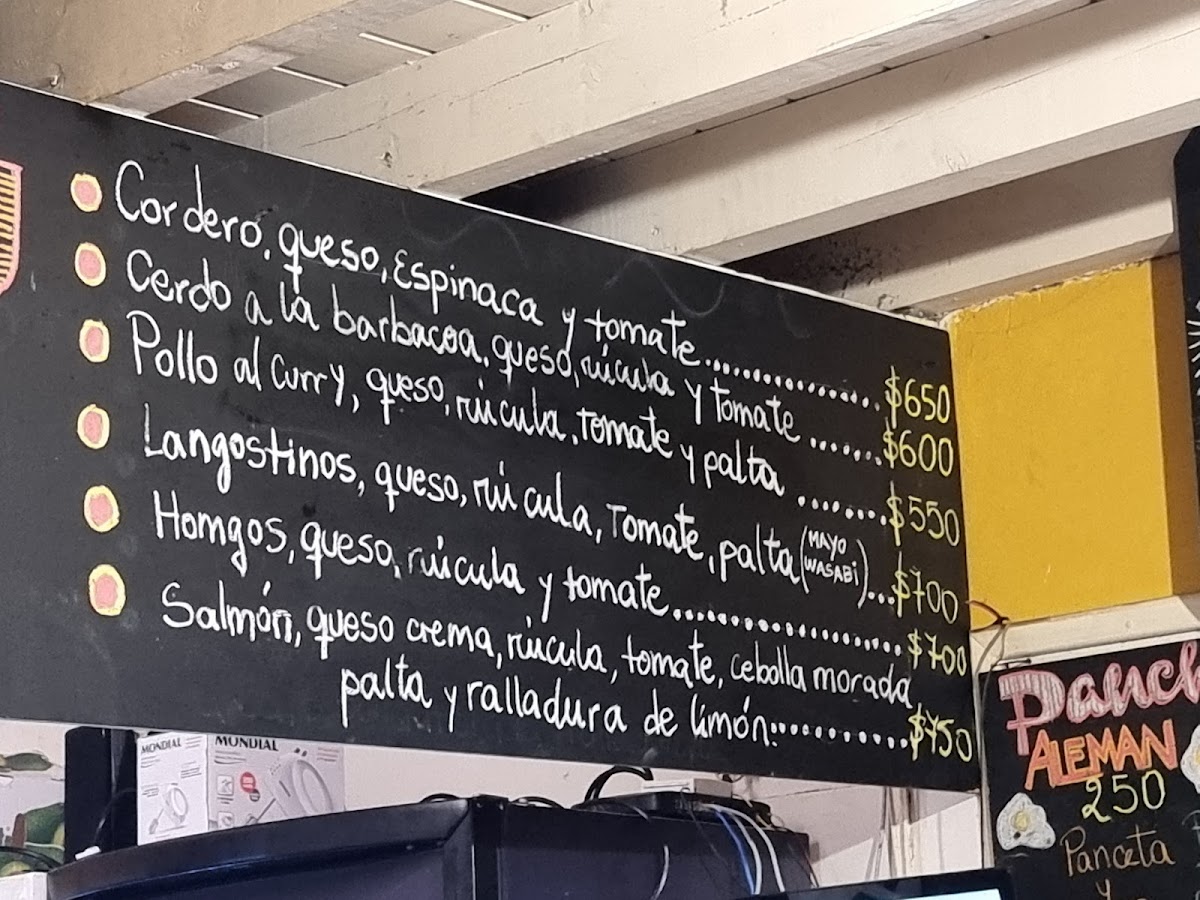 Cordero, queso, Espinaca y tomate.................$650
Cerdo a la barbacoa, queso, rúcula y tomate .......$600
Pollo al curry, queso, rúcula, tomate y palta .......$550
Langostinos, queso, rúcula, Tomate, palta (MAYO WASABI)...$700
Homgos, queso, rúcula y tomate....................$700
Salmón, queso crema, rúcula, tomate, cebolla morada
palta y ralladura de limón............$750
MONDIAL
MONDIAL
ALEMAN
250
Panceta
y